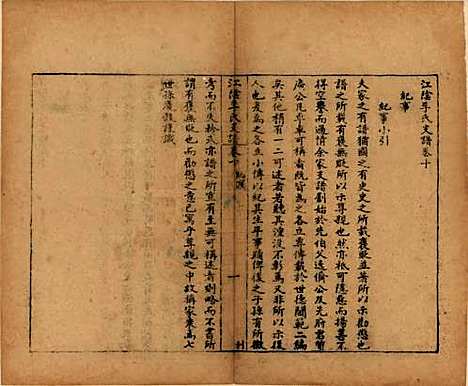 江陰季氏支譜卷十
紀事
紀事小引
夫家之有譜猶國之有史史之所載褒貶並著所以示勸懲也
譜之所載有褒無貶所以示尊親也然亦祗可隱惡而揚善不
得空譽而適情余家支譜創始於先伯父逸倫公及先府君
庵公凡卓卓可稱者既皆為之各立專傳載於世德閫範二編
矣其他稍有一二可述者若聽其湮沒不彰焉又非所以示後
人也爰為之各立小傳以紀其生平事蹟俾後之子孫有所徵
江陰季氏支譜卷十 紀事 一
考而不失於忒亦譜之所宜有至無可稱述者則略而不書所
謂有褒無貶也而勸懲之意已寓乎尊親之中故稱家乘焉七
世孫 謹識